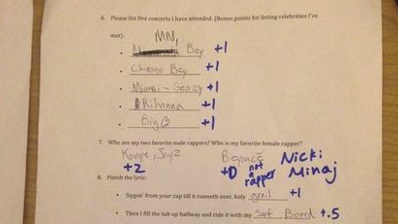 6. Please list five concerts I have attended. (Bonus points for listing celebrities I've
met):
MN,
Bey +1
Chicago Bey +1
Miami - Geazy +1
Rihanna +1
Big +1
7. Who are my two favorite male rappers? Who is my favorite female rapper?
Kanye, Jay Z Beyoncé Nicki
+2 +0 not a rapper Minaj
8. Finish the lyric:
Sippin' from your cup till it runneth over, holy grail +1
Then I fill the tub up halfway and ride it with my Surf Board +.5